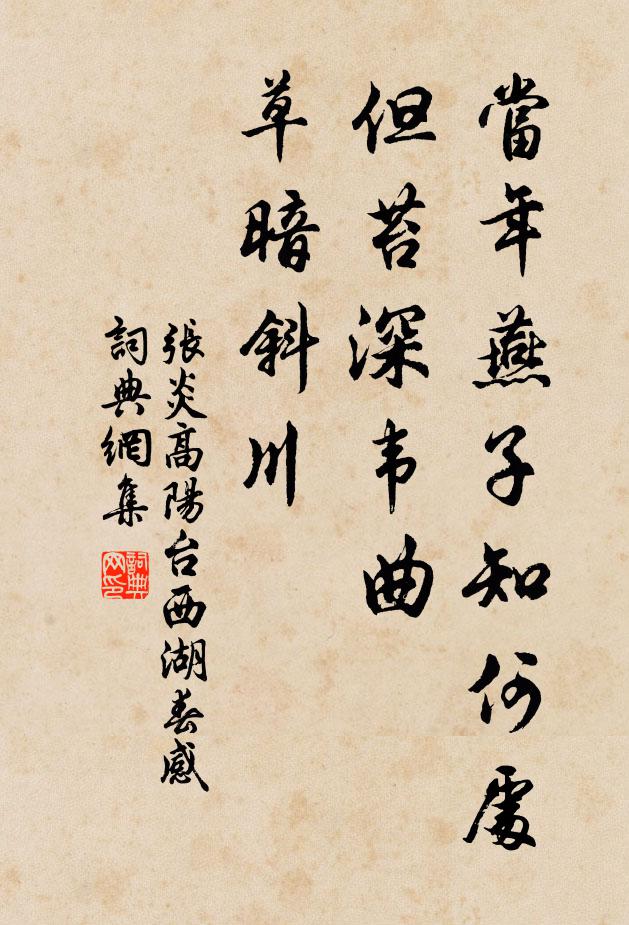 當年燕子知何處
但苔深韦曲
草暗斜川
張炎高陽台西湖春感
詞典網集
詞典网印